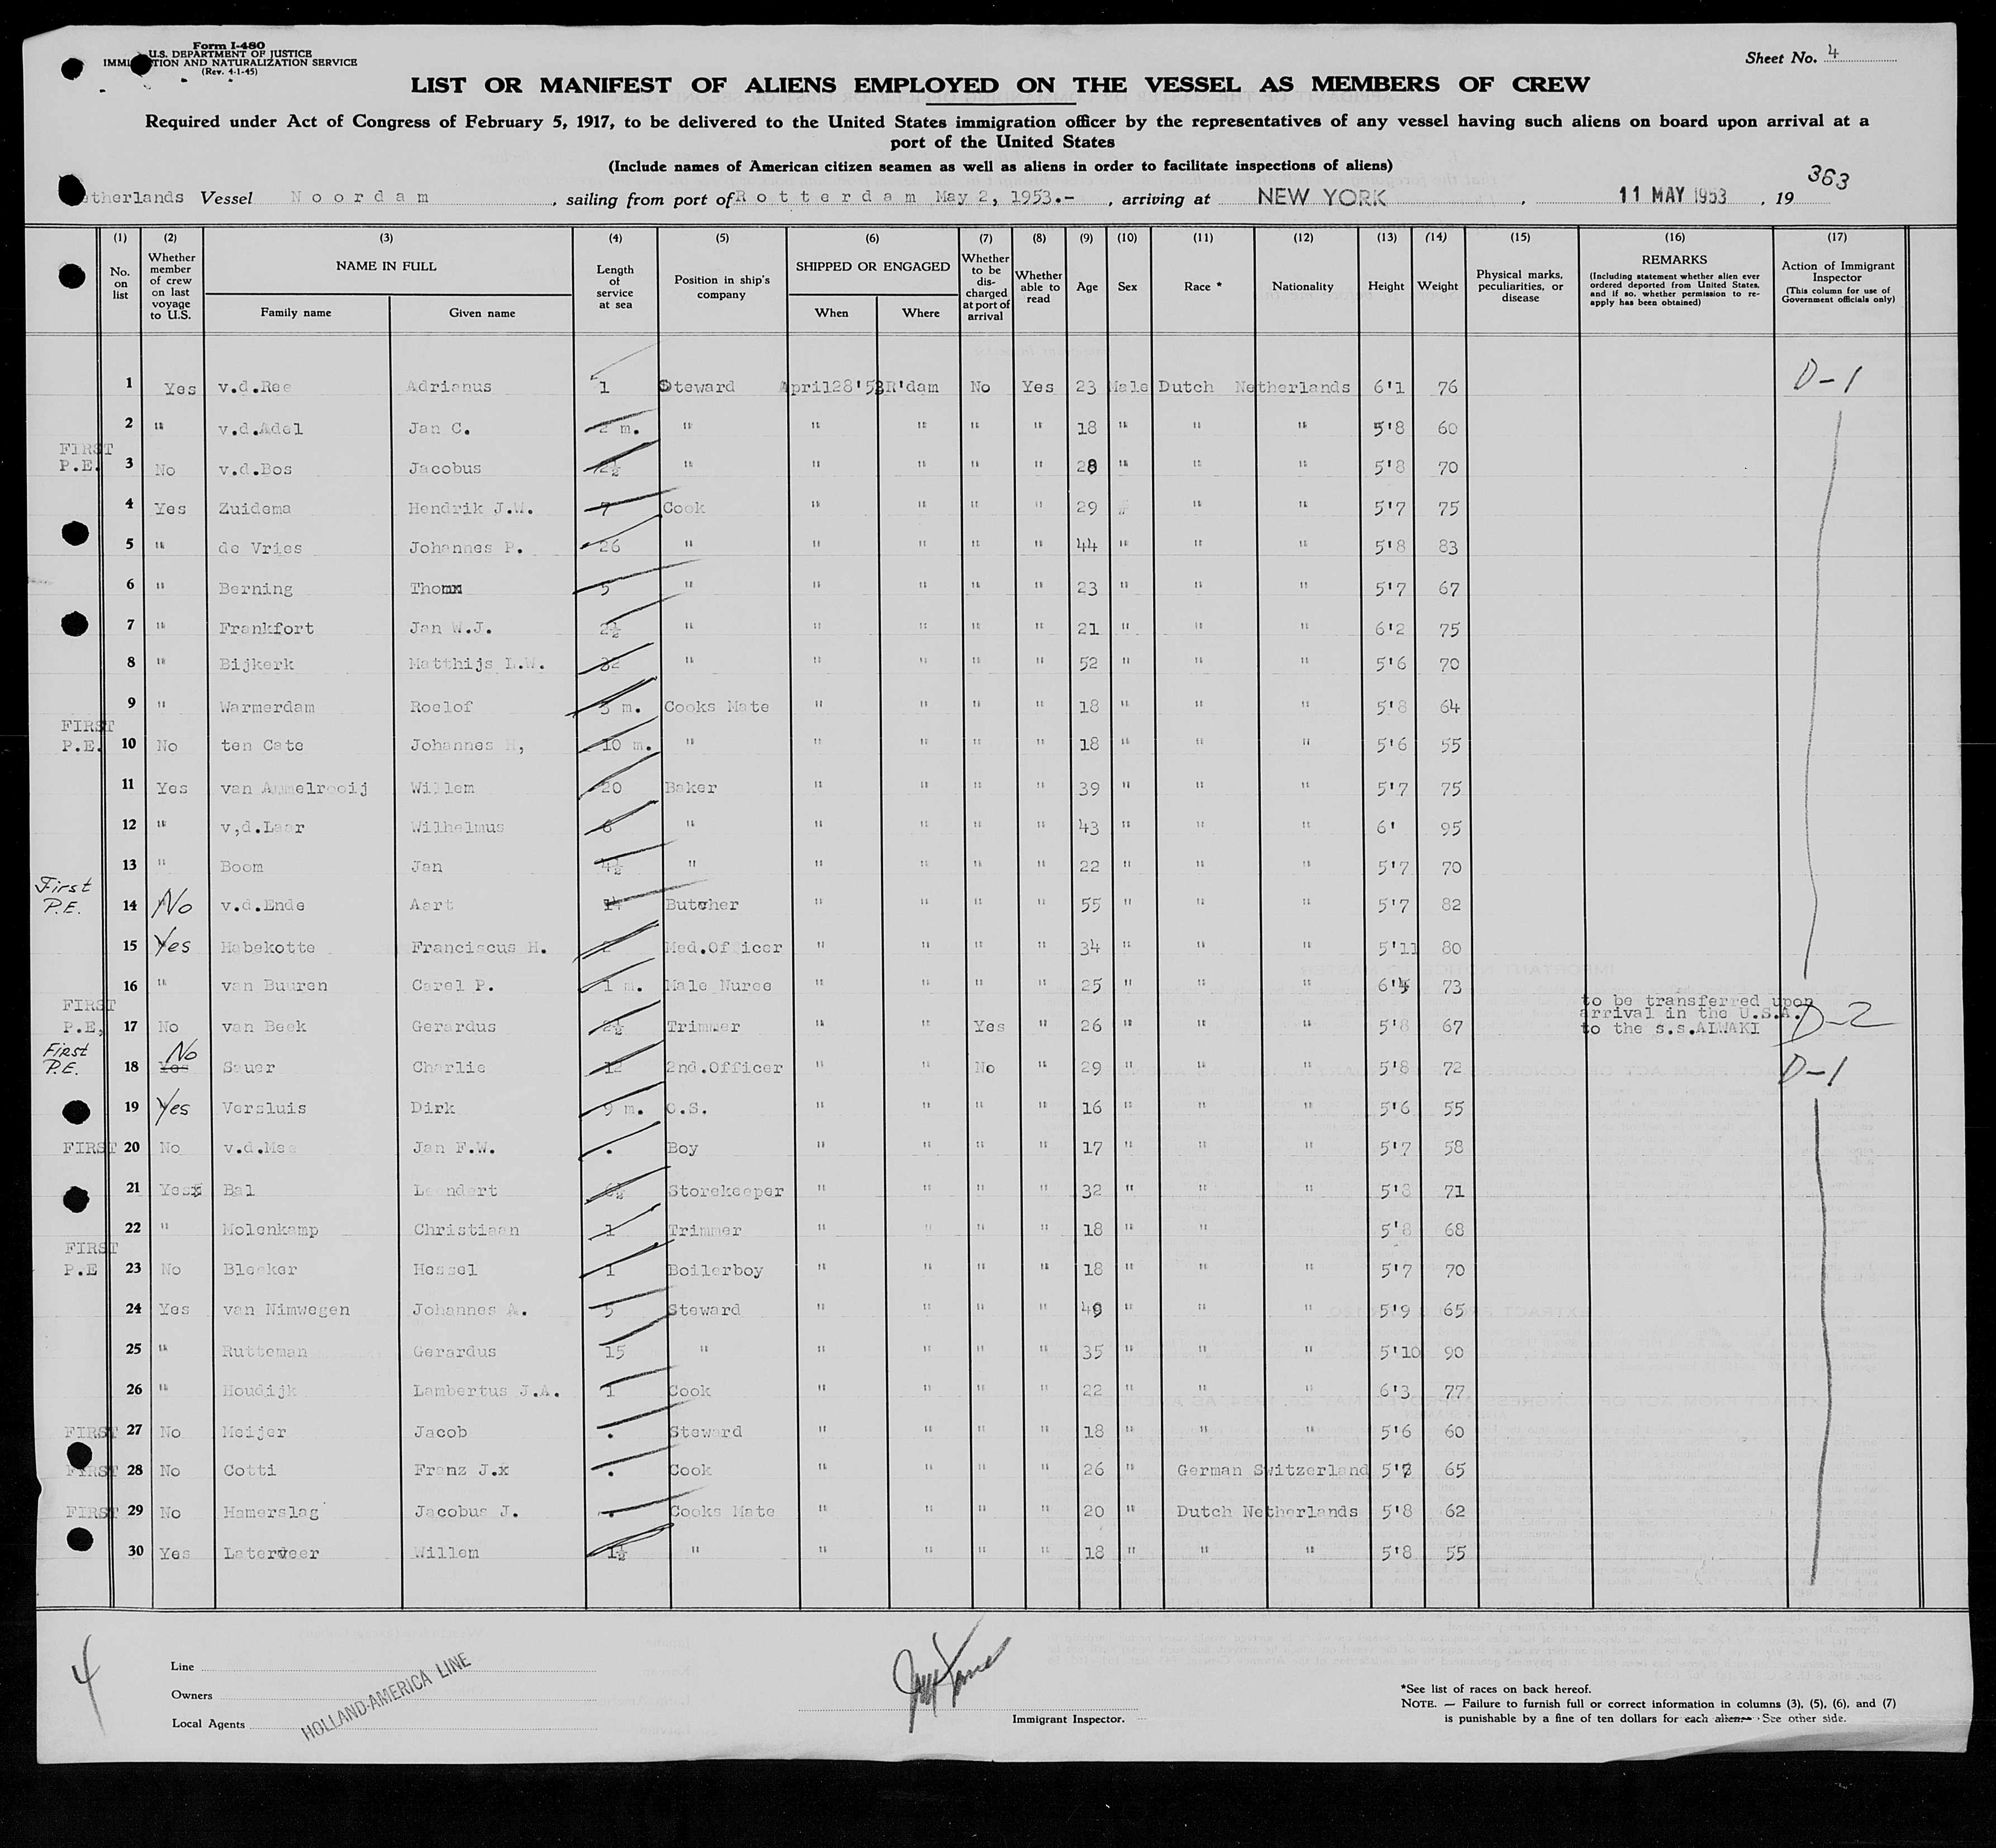 Form I-480
U.S. DEPARTMENT OF JUSTICE
IMMI TION AND NATURALIZATION SERVICE
(Rev. 4-1-45)
Sheet No. 4
LIST OR MANIFEST OF ALIENS EMPLOYED ON THE VESSEL AS MEMBERS OF CREW
Required under Act of Congress of February 5, 1917, to be delivered to the United States immigration officer by the representatives of any vessel having such aliens on board upon arrival at a
port of the United States
(Include names of American citizen seamen as well as aliens in order to facilitate inspections of aliens)
363
etherlands Vessel Noordam, sailing from port of Rotterdam May 2, 1953.-, arriving at NEW YORK, 11 MAY 1953, 19
(1) No. on list
(2) Whether member of crew on last voyage to U.S.
(3) NAME IN FULL
Family name Given name
(4) Length of service at sea
(5) Position in ship's company
(6) SHIPPED OR ENGAGED
When Where
(7) Whether to be discharged at port of arrival
(8) Whether able to read
(9) Age
(10) Sex
(11) Race *
(12) Nationality
(13) Height
(14) Weight
(15) Physical marks, peculiarities, or disease
(16) REMARKS
(Including statement whether alien ever ordered deported from United States, and if so, whether permission to re-apply has been obtained)
(17) Action of Immigrant Inspector
(This column for use of Government officials only)
1 Yes v.d.Ree Adrianus 1 Steward April28'53 R'dam No Yes 23 Male Dutch Netherlands 6'1 76 D-1
2 " v.d.Adel Jan C. 2 m. " " " " " 18 " " " 5'8 60
FIRST
P.E. 3 No v.d.Bos Jacobus 2½ " " " " " 28 " " " 5'8 70
4 Yes Zuidema Hendrik J.W. 7 Cook " " " " 29 " " " 5'7 75
5 " de Vries Johannes P. 26 " " " " " 44 " " " 5'8 83
6 " Berning Thom 5 " " " " " 23 " " " 5'7 67
7 " Frankfort Jan W.J. 2½ " " " " " 21 " " " 6'2 75
8 " Bijkerk Matthijs L.W. 32 " " " " " 52 " " " 5'6 70
9 " Warmerdam Roelof 3 m. Cooks Mate " " " " 18 " " " 5'8 64
FIRST
P.E. 10 No ten Cate Johannes H, 10 m. " " " " " 18 " " " 5'6 55
11 Yes van Ammelrooij Willem 20 Baker " " " " 39 " " " 5'7 75
12 " v,d.Laar Wilhelmus 6 " " " " " 43 " " " 6' 95
13 " Boom Jan 4½ " " " " " 22 " " " 5'7 70
First
P.E. 14 No v.d.Ende Aart 14 Butcher " " " " 55 " " " 5'7 82
15 Yes Habekotte Franciscus H. 2 Med.Officer " " " " 34 " " " 5'11 80
16 " van Buuren Carel P. 1 m. Male Nurse " " " " 25 " " " 6'4 73
FIRST
P.E, 17 No van Beek Gerardus 2½ Trimmer " " Yes " 26 " " " 5'8 67 to be transferred upon
arrival in the U.S.A.
to the s.s.ALWAKI D-2
First
P.E. 18 Yes No Sauer Charlie 12 2nd.Officer " " No " 29 " " " 5'8 72 D-1
19 Yes Versluis Dirk 9 m. O.S. " " " " 16 " " " 5'6 55
FIRST 20 No v.d.Mee Jan F.W. . Boy " " " " 17 " " " 5'7 58
21 Yes Bal Leendert 6½ Storekeeper " " " " 32 " " " 5'8 71
22 " Molenkamp Christiaan 1 Trimmer " " " " 18 " " 5'8 68
FIRST
P.E 23 No Bleeker Hessel 1 Boilerboy " " " " 18 " " " 5'7 70
24 Yes van Nimwegen Johannes A. 5 Steward " " " " 49 " " " 5'9 65
25 " Rutteman Gerardus 15 " " " " " 35 " " " 5'10 90
26 " Houdijk Lambertus J.A. 1 Cook " " " " 22 " " " 6'3 77
FIRST 27 No Meijer Jacob . Steward " " " " 18 " " " 5'6 60
FIRST 28 No Cotti Franz J.x . Cook " " " " 26 " German Switzerland 65
FIRST 29 No Hamerslag Jacobus J. . Cooks Mate " " " " 20 " Dutch Netherlands 5'8 62
30 Yes Laterveer Willem 1½ " " " " " 18 " " " 5'8 55
4
Line
Owners
Local Agents
HOLLAND-AMERICA LINE
Immigrant Inspector.
*See list of races on back hereof.
NOTE. — Failure to furnish full or correct information in columns (3), (5), (6), and (7)
is punishable by a fine of ten dollars for each alien. See other side.